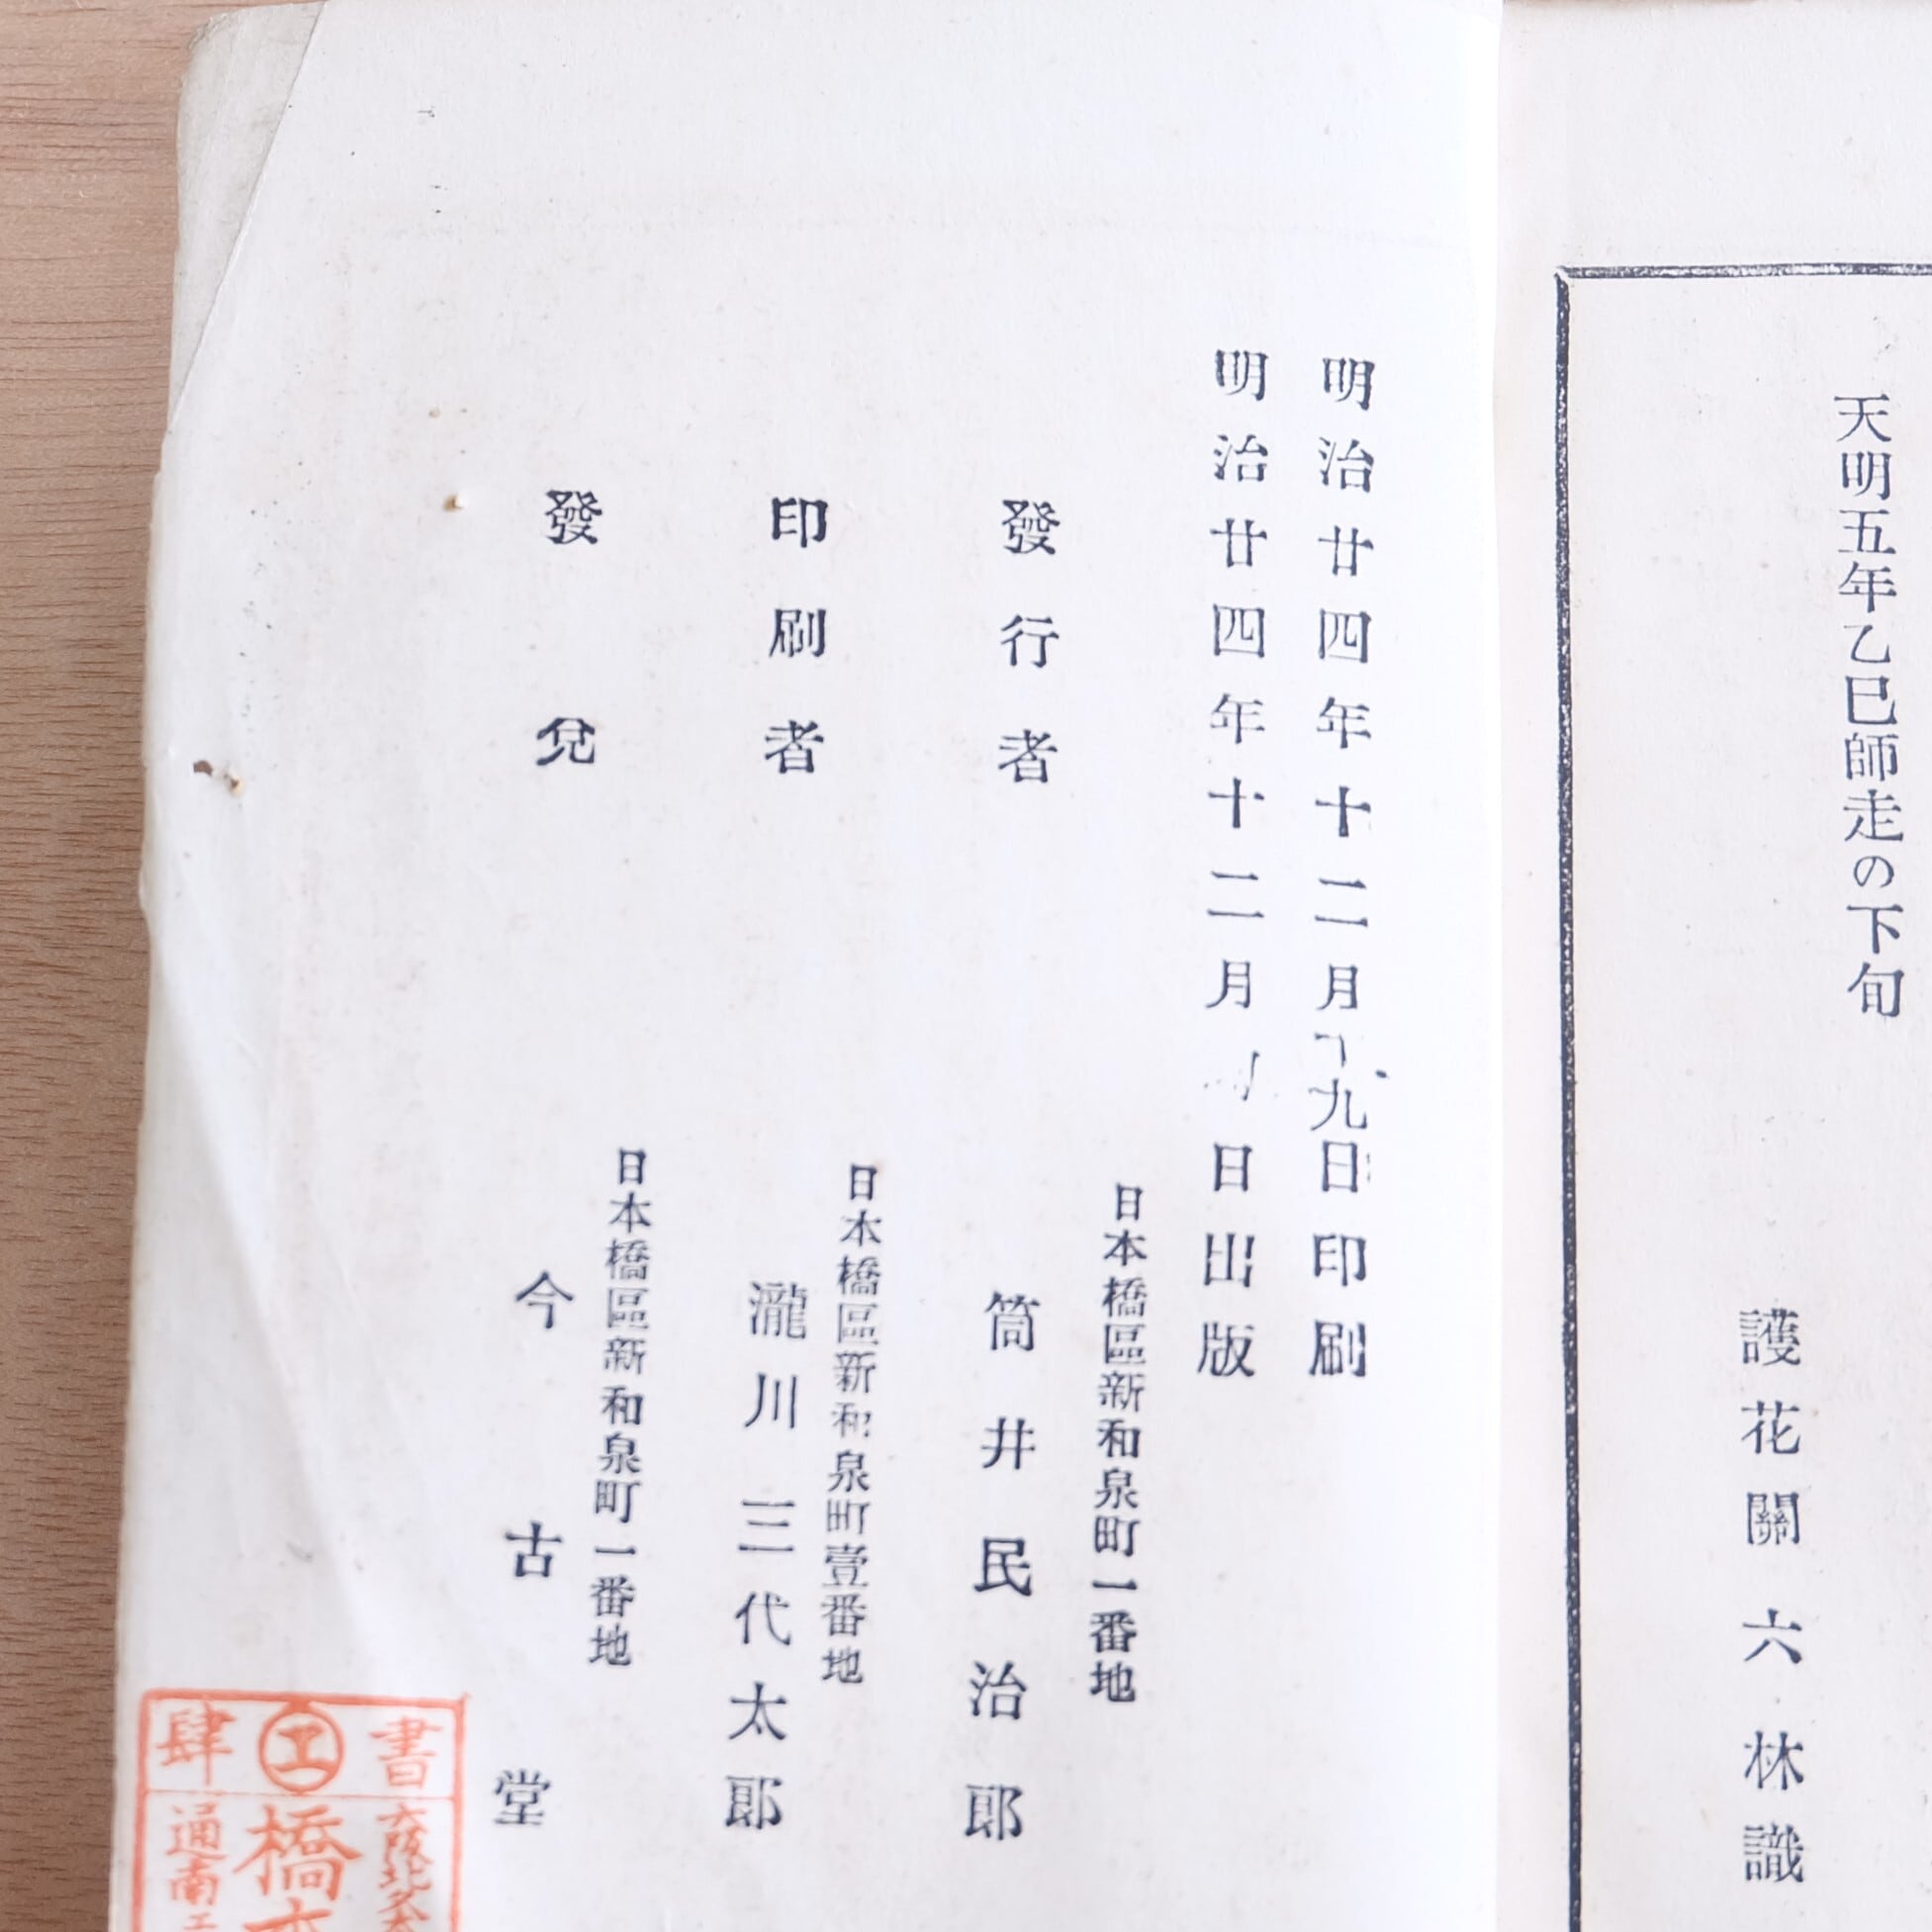 天明五年乙巳師走の下旬
護花關 六林識
明治廿四年十二月十九日印刷
明治廿四年十二月 日出版
日本橋區新和泉町一番地
發行者 筒井民治郎
日本橋區新和泉町壹番地
印刷者 瀧川三代太郎
日本橋區新和泉町一番地
發兌 今古堂
書 エ 肆
大阪北久太
橋本
通南